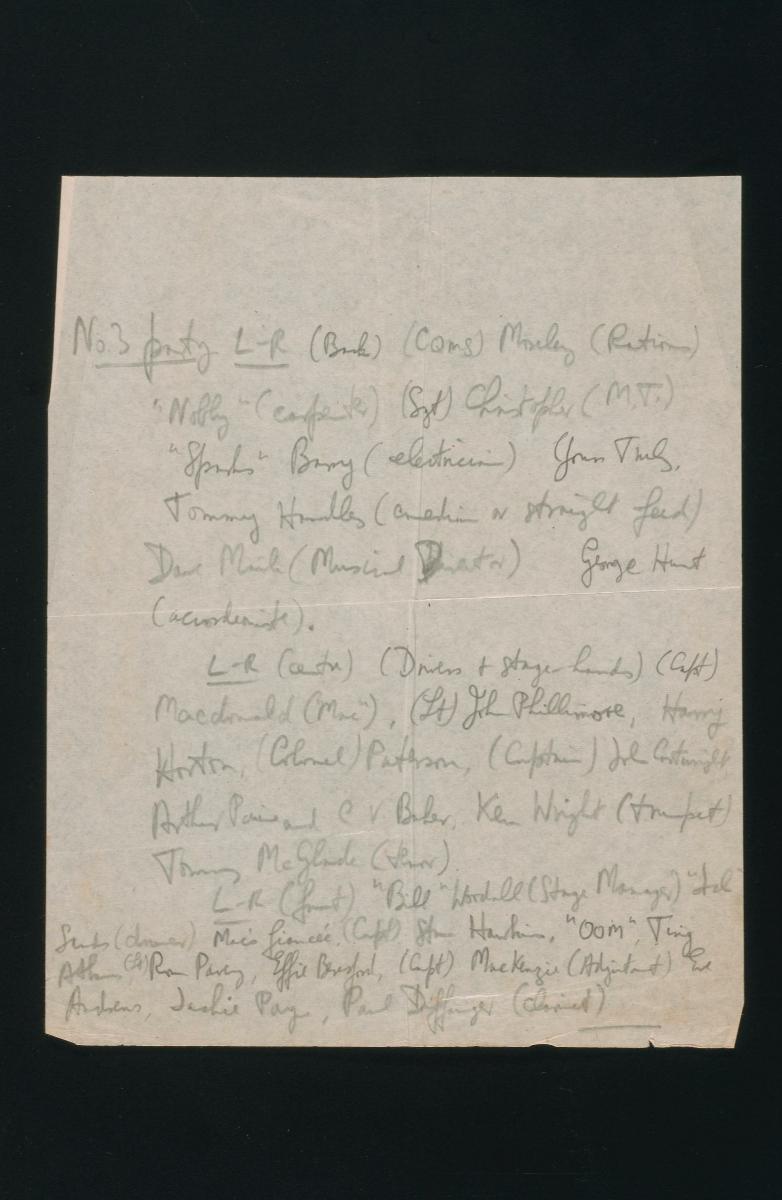 No. 3 party L-R (Back) (CQMS) Moseley (Rations)
"Nobby" (carpenter) (Sgt) Christopher (M.T.)
"Sparks" Barry (electrician) Yours Truly,
Tommy Handles (comedian or straight feed)
Dave (Musical Director) George Hunt
(accordionist).
L-R (centre) (Drivers & stage-hands) (Capt)
Macdonald ("Mac"), (Lt) John Phillimore, Harry
Horton, (Colonel) Paterson, (Captain) John Cartwright
Arthur Paine and C V Baker, Ken Wright (trumpet)
Tommy McGlade (tenor)
L-R (front) "Bill" Wardall (Stage Manager)
Sands (drummer) Mac's fiancée, (Capt) Stan Hawkins, "OOM", Tiny
(Lt) Ron Pavey, Effie Beresford, (Capt) MacKenzie (Adjutant) Eve
Andrews, Jackie Page, Paul (clarinet)